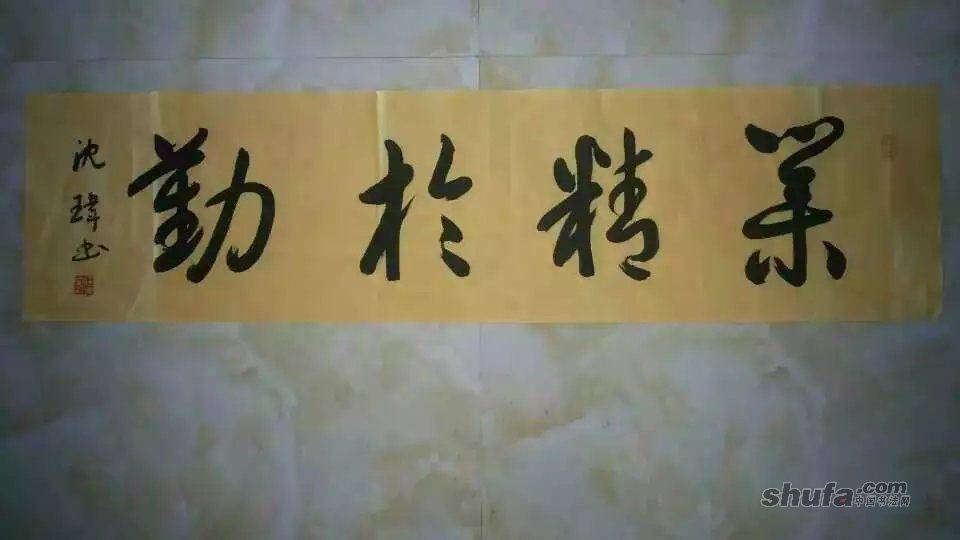 業精於勤
沈瑋书
shufa.com
中国书法网